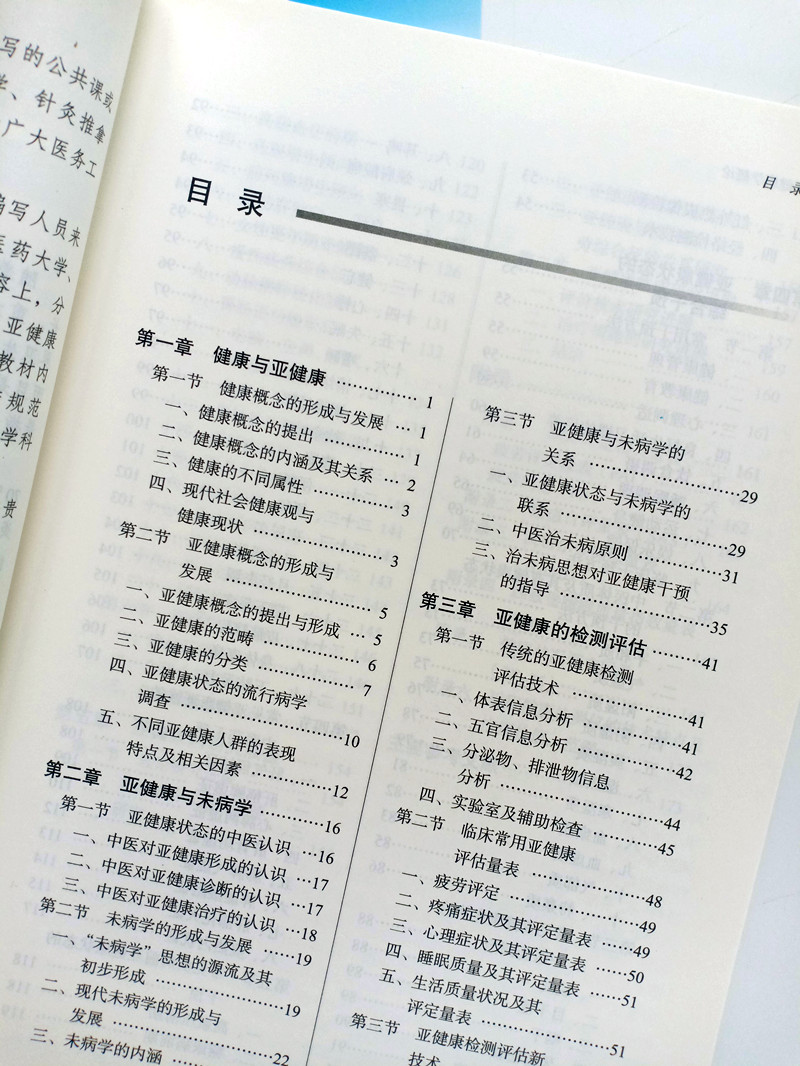 写的公共课或
学、针灸推拿
广大医务工
编写人员来
医药大学、
容上，分
亚健康
教材内
规范
学科
贵
目 录
目录
第一章 健康与亚健康 …………… 1
第一节 健康概念的形成与发展 … 1
一、健康概念的提出 …………… 1
二、健康概念的内涵及其关系 … 2
三、健康的不同属性 …………… 3
四、现代社会健康观与
健康现状 …………………… 3
第二节 亚健康概念的形成与
发展 ………………………… 5
一、亚健康概念的提出与形成 … 5
二、亚健康的范畴 ……………… 6
三、亚健康的分类 ……………… 7
四、亚健康状态的流行病学
调查 ………………………… 10
五、不同亚健康人群的表现
特点及相关因素 …………… 12
第二章 亚健康与未病学 ………… 16
第一节 亚健康状态的中医认识 …16
一、中医对亚健康形成的认识 …17
二、中医对亚健康诊断的认识 …17
三、中医对亚健康治疗的认识 …18
第二节 未病学的形成与发展 ……19
一、“未病学”思想的源流及其
初步形成 ……………………19
二、现代未病学的形成与
发展 …………………………22
三、未病学的内涵
第三节 亚健康与未病学的
关系 …………………………29
一、亚健康状态与未病学的
联系 …………………………29
二、中医治未病原则 ……………31
三、治未病思想对亚健康干预
的指导 ………………………35
第三章 亚健康的检测评估 ………41
第一节 传统的亚健康检测
评估技术 ……………………41
一、体表信息分析 ………………41
二、五官信息分析 ………………42
三、分泌物、排泄物信息
分析 …………………………44
四、实验室及辅助检查 …………45
第二节 临床常用亚健康
评估量表 ……………………48
一、疲劳评定 ……………………49
二、疼痛症状及其评定量表 ……49
三、心理症状及其评定量表 ……50
四、睡眠质量及其评定量表 ……51
五、生活质量状况及其
评定量表 ……………………51
第三节 亚健康检测评估新
技术